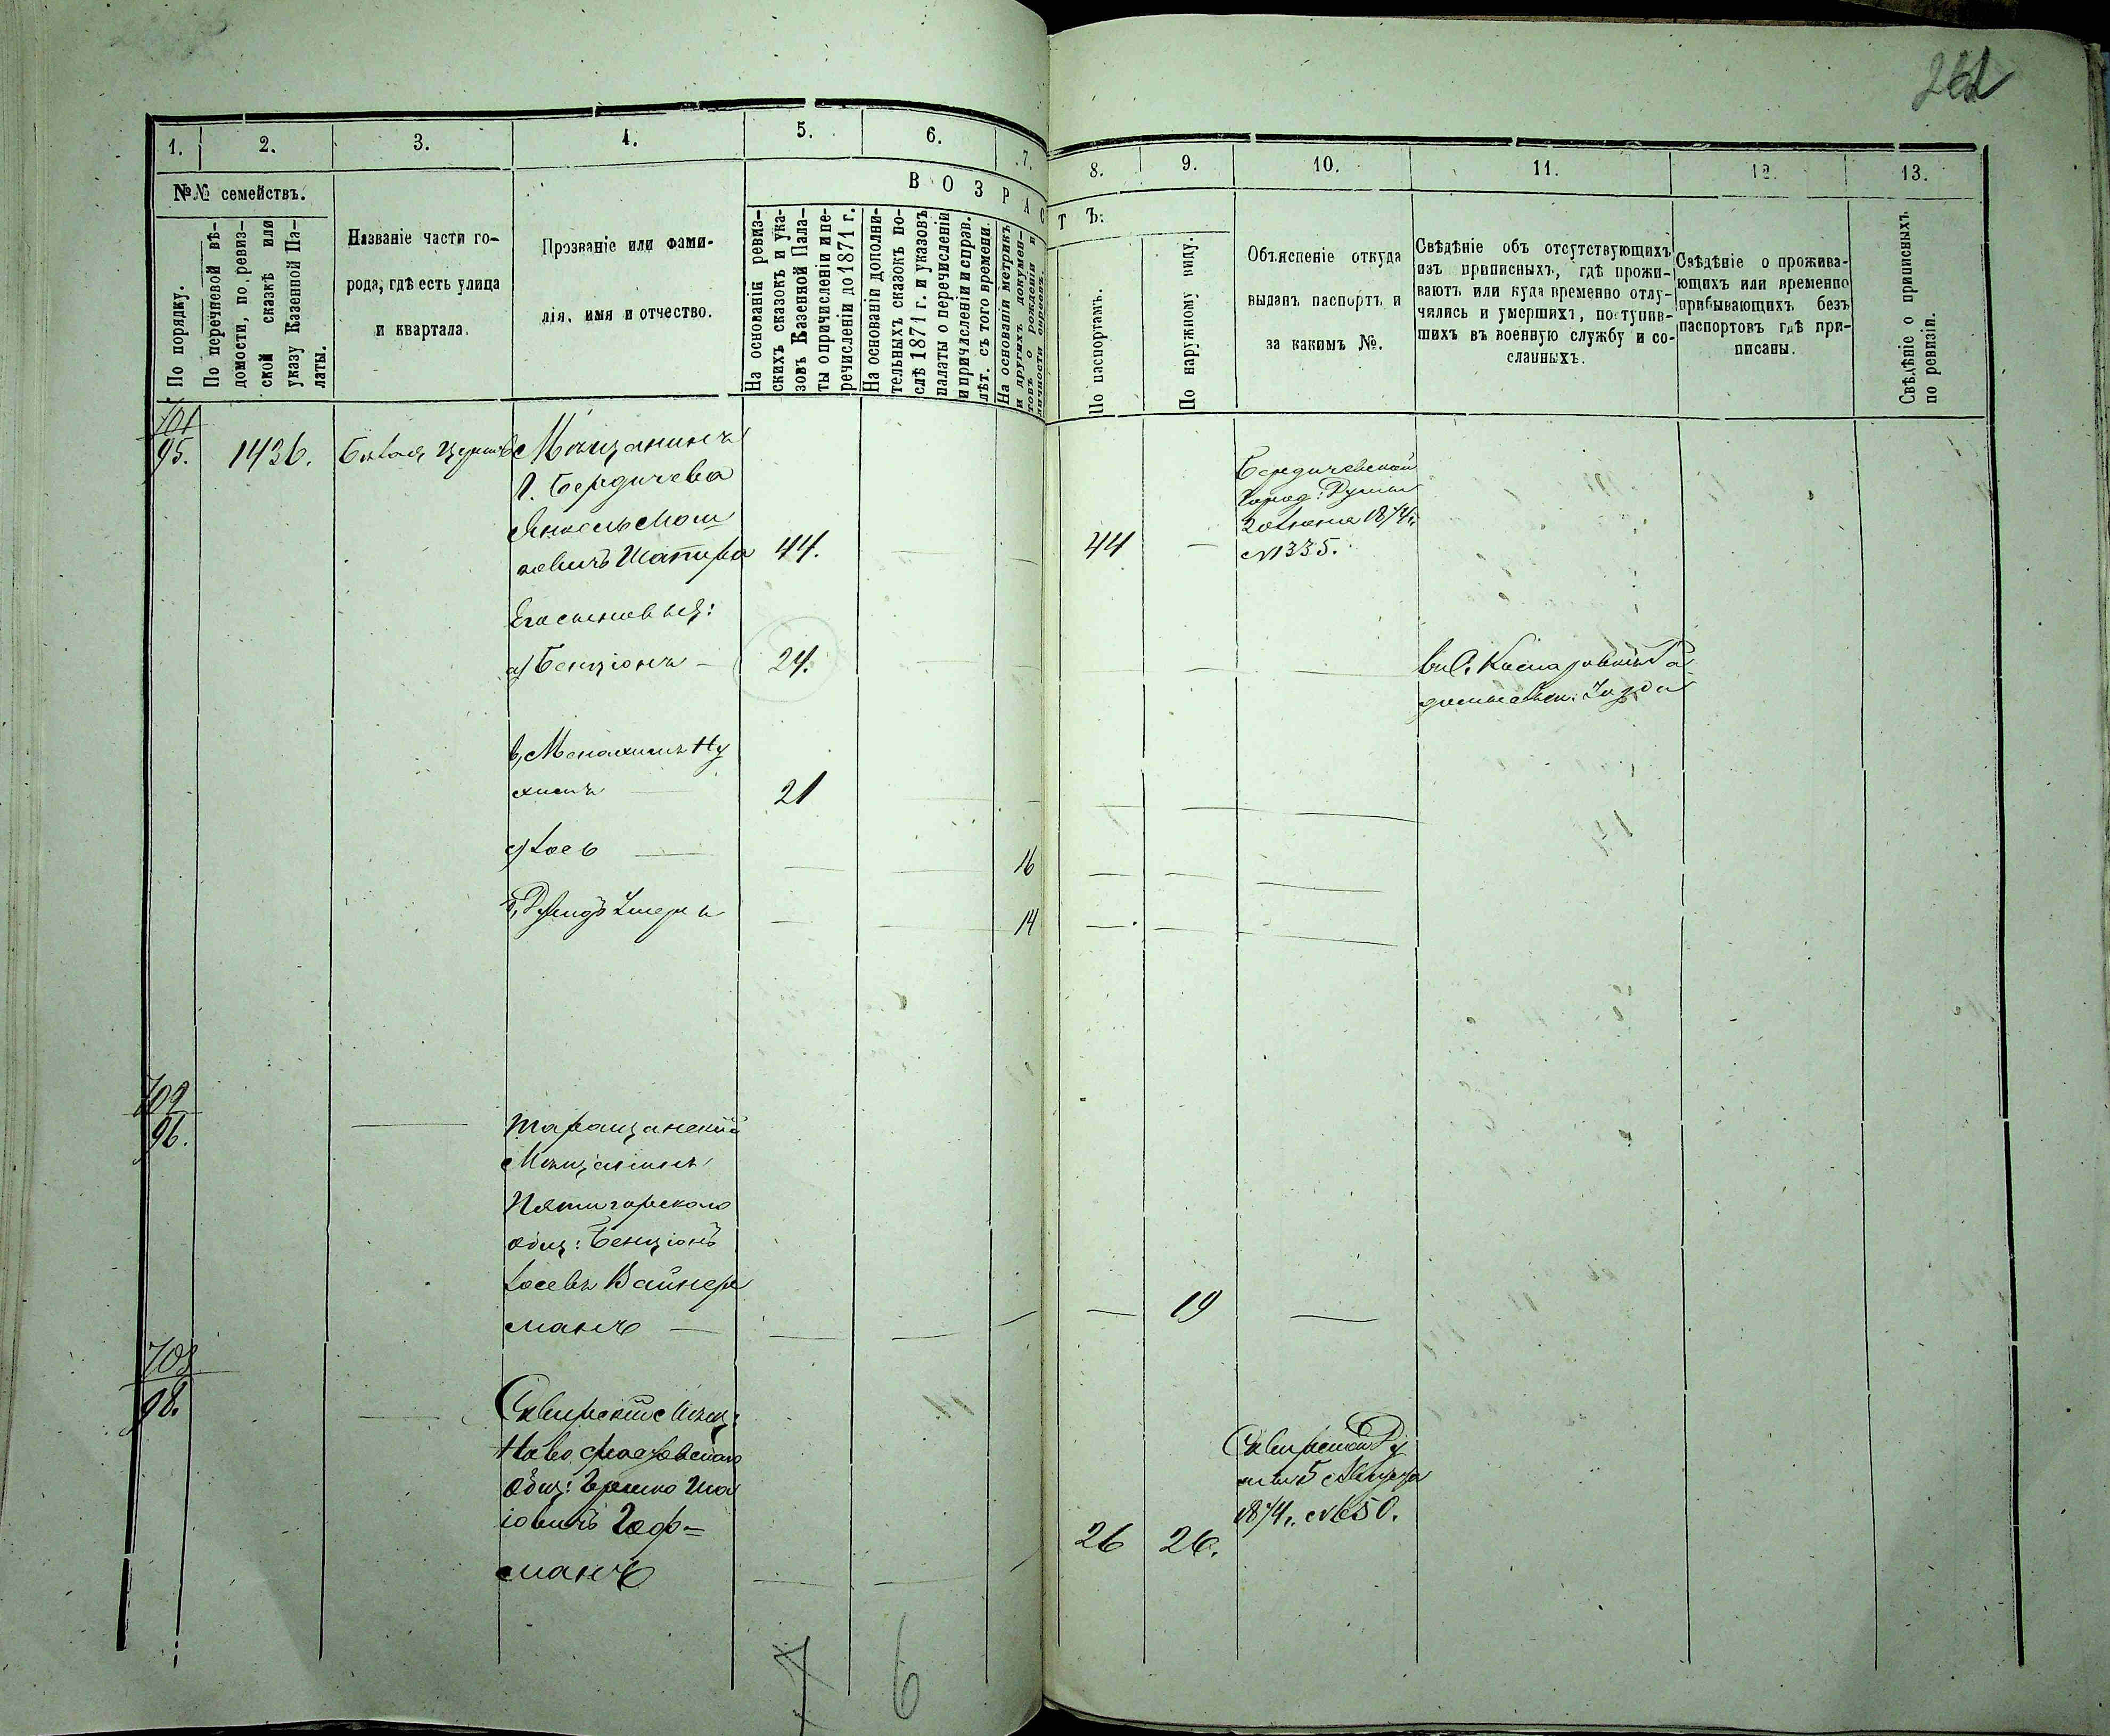 262
1.
2.
3.
4.
5.
6.
7.
8.
9.
10.
11.
12.
13.
№№ семействъ.
По порядку.
По перечневой вѣ-
домости, по ревиз-
ской сказкѣ или
указу Казенной Па-
латы.
Названіе части го-
рода, гдѣ есть улица
и квартала.
Прозваніе или фами-
лія, имя и отчество.
ВОЗРАСТЪ:
На основаніи ревиз-
скихъ сказокъ и ука-
зовъ Казенной Пала-
ты о причисленіи и пе-
речисленіи до 1871 г.
На основаніи дополни-
тельныхъ сказокъ по-
слѣ 1871 г. и указовъ
палаты о перечисленіи
и причисленіи и справ.
лѣт. съ того времени.
На основаніи метрикъ
и другихъ докумен-
товъ о рожденіи и
личности евреевъ.
По паспортамъ.
По наружному виду.
Объясненіе откуда
выданъ паспортъ и
за какимъ №.
Свѣдѣніе объ отсутствующихъ
изъ приписныхъ, гдѣ прожи-
ваютъ или куда временно отлу-
чились и умершихъ, поступив-
шихъ въ военную службу и со-
сланныхъ.
Свѣдѣніе о прожива-
ющихъ или временно
прибывающихъ безъ
паспортовъ гдѣ при-
писаны.
Свѣдѣніе о приписныхъ
по ревизіи.
701
95. 1436. Бѣлая Церковь Мѣщанинъ
г. Бердичева
Янкель Мош
ковичъ Шапира 44. — — 44 —
Бердичевской
Город: Думы
20 Іюня 1874 г.
№ 335.
Его сыновья:
а) Бенціонъ — 24. — — —
в, Менахимъ Ну
химъ — 21 — — — — —
с) Іось — — — 16 — — —
— — 14 — — —
702
96. — Таращанскій
Мѣщанинъ
Пятигорскаго
общ: Бенціонъ
Іосевъ Вайнер
манъ — — — — — 19 —
703
98. — Сквирскій Мѣщ:
общ: Гершко Ша
іовичъ Гоф=
манъ — — 26 26.
Сквирской Ду
мы 5 Августа
1874 г. № 650.
7 6